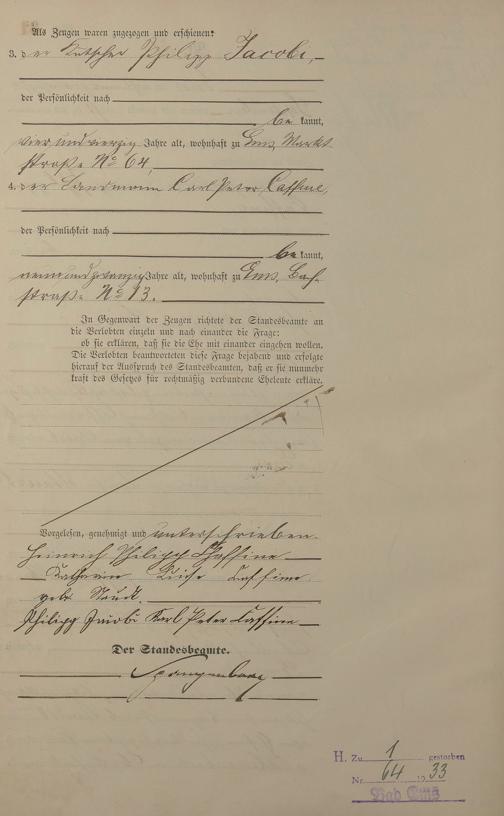 Als Zeugen waren zugezogen und erschienen:
3. der Kutscher Philipp Jacobi,
der Persönlichkeit nach
be kannt,
vier und vierzig Jahre alt, wohnhaft zu Ems, Markt
straße No 64,
4. der Landmann Carl Peter Caffine,
der Persönlichkeit nach
be kannt,
neun und zwanzig Jahre alt, wohnhaft zu Ems, Bach
straße No 13.
In Gegenwart der Zeugen richtete der Standesbeamte an
die Verlobten einzeln und nach einander die Frage:
ob sie erklären, daß sie die Ehe mit einander eingehen wollen.
Die Verlobten beantworteten diese Frage bejahend und erfolgte
hierauf der Ausspruch des Standesbeamten, daß er sie nunmehr
kraft des Gesetzes für rechtmäßig verbundene Eheleute erkläre.
Vorgelesen, genehmigt und unterschrieben.
Heinrich Philipp Caffine
Katharine Luise Caffine
geb.
Philipp Jacobi Karl Peter Caffine
Der Standesbeamte.
Spangenberg
H. Zu 1 gestorben
Nr. 64 1933
Bad Ems